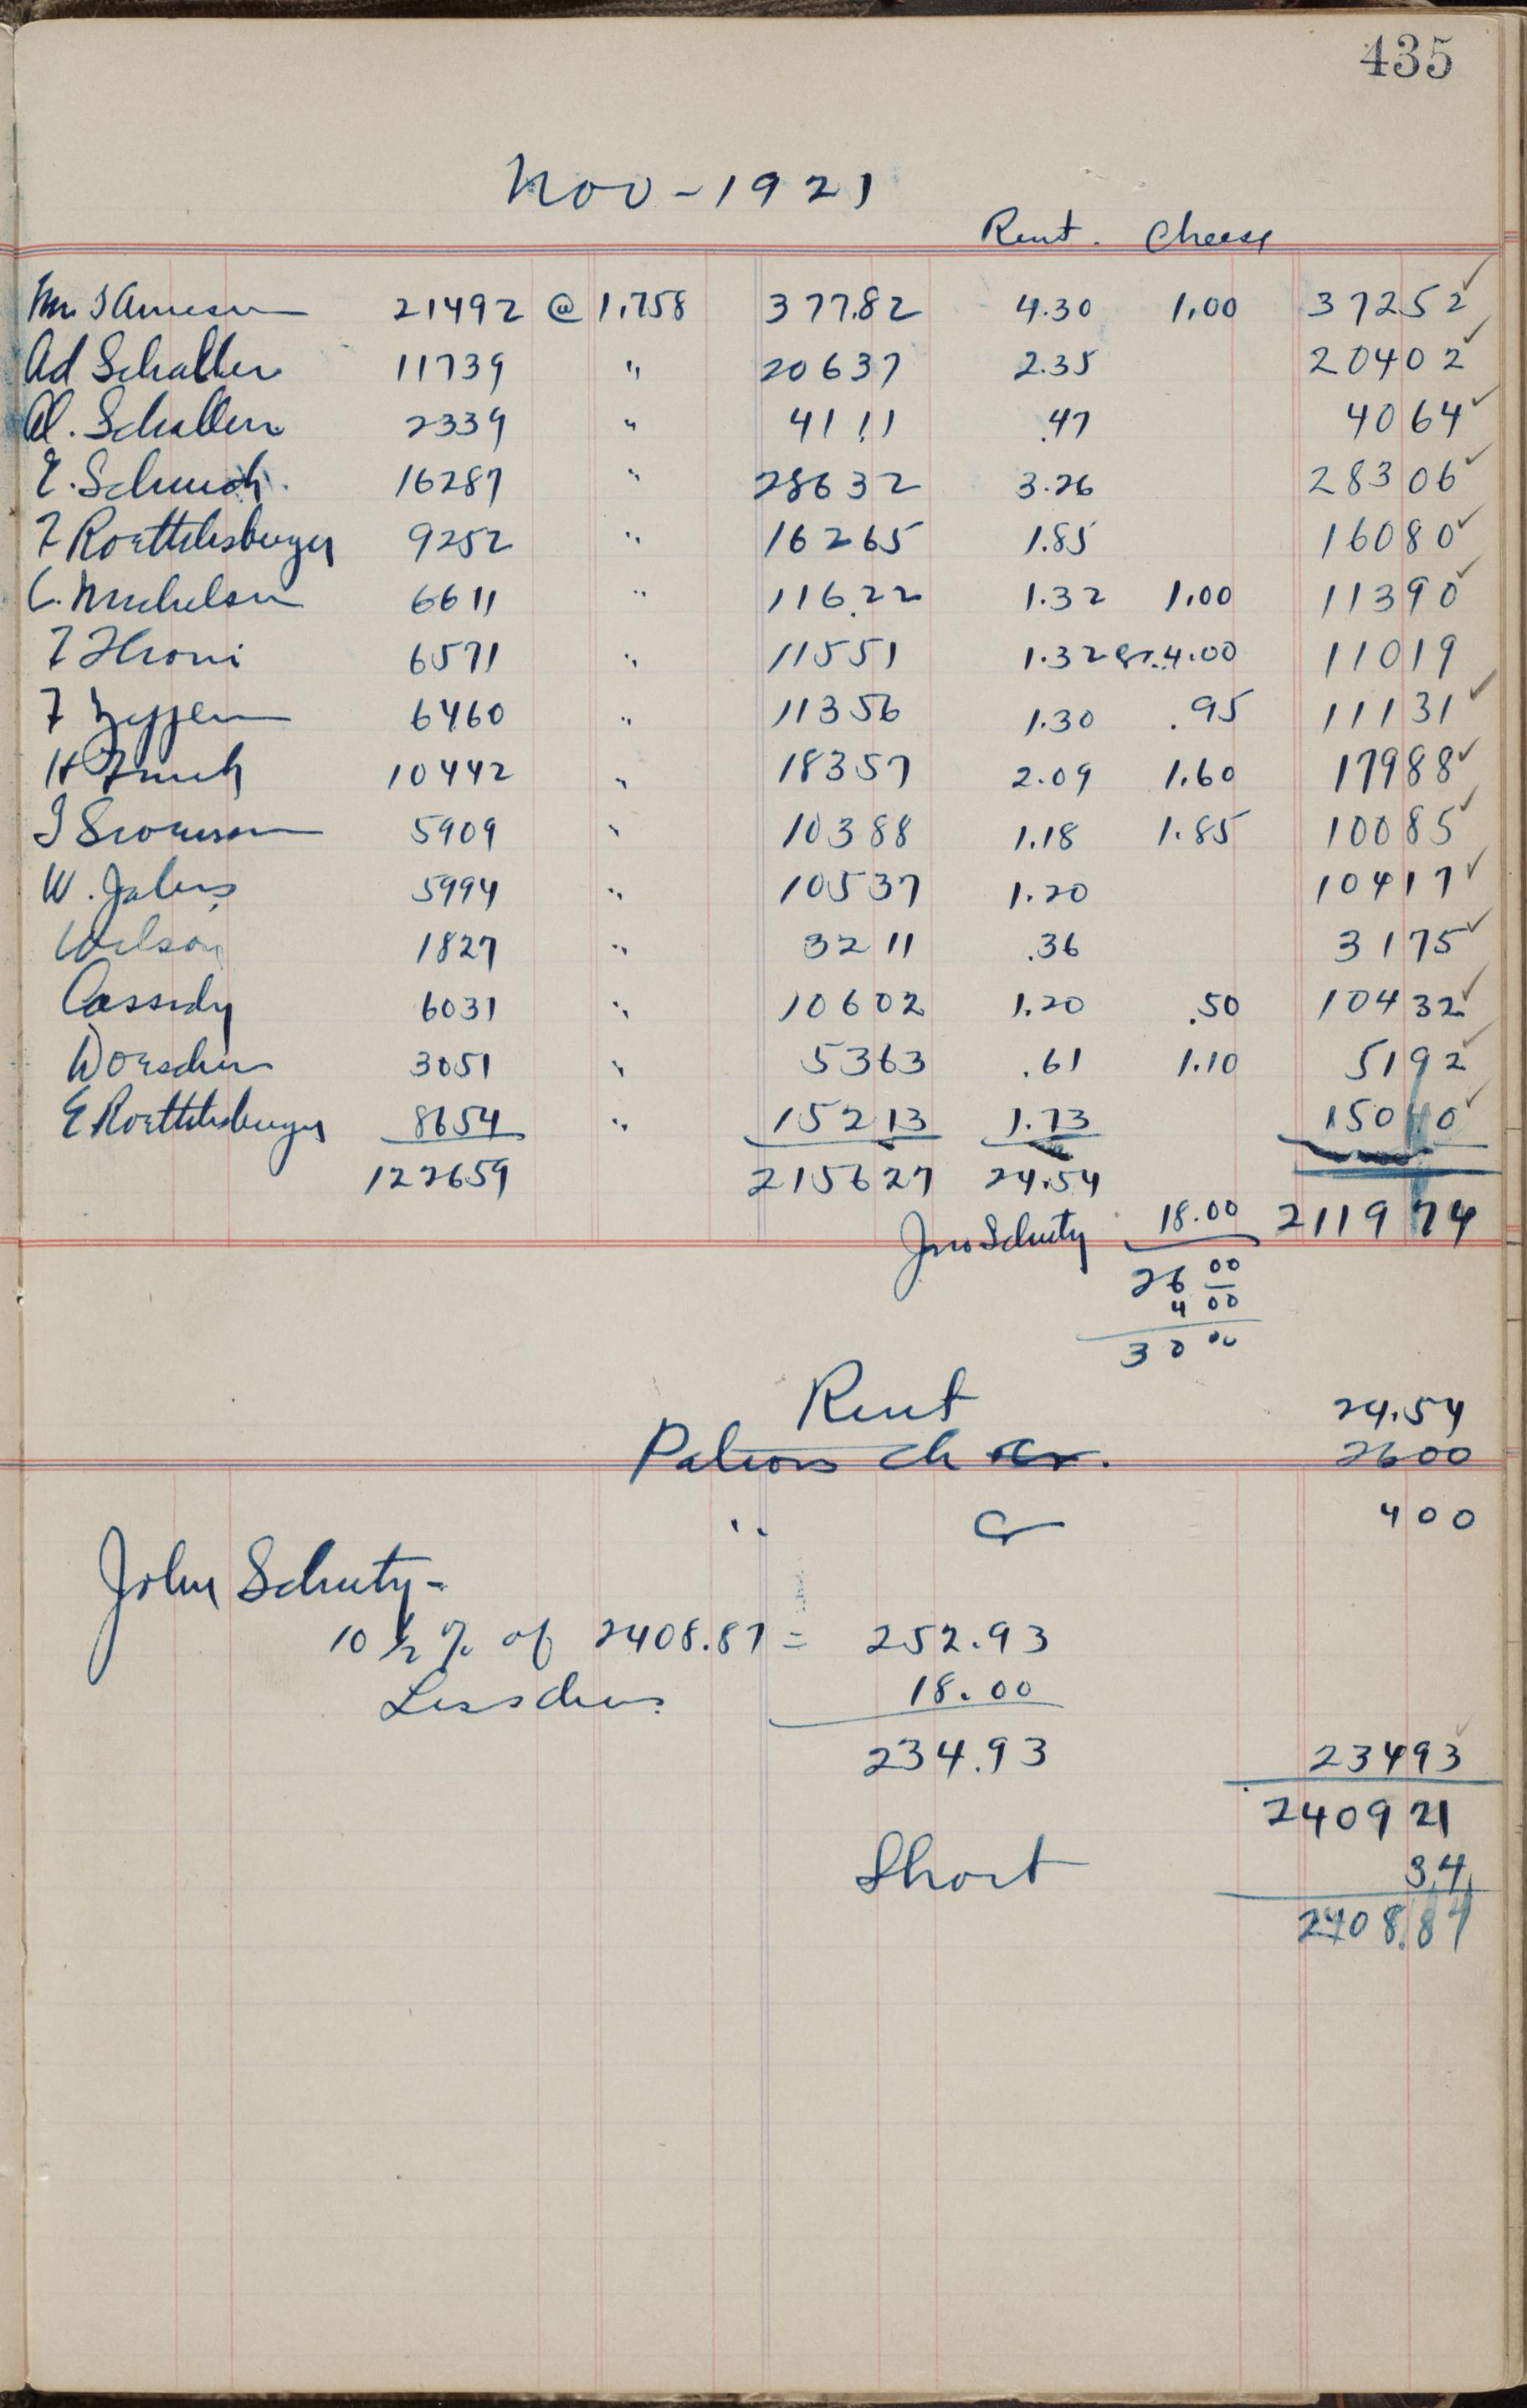 435
Nov - 1921
Rent. Cheese
21492 @ 1.758 377.82 4.30 1.00 37252 ✓
Ad Schaller 11739 " 20637 2.35 20402 ✓
Al. Schaller 2339 " 4111 .47 4064 ✓
E. 16287 " 28632 3.26 28306 ✓
F Roethlisberger 9252 " 16265 1.85 16080 ✓
C. Michelson 6611 " 116.22 1.32 1.00 11390 ✓
F 6571 " 11551 1.32 4.00 11019
F 6460 " 11356 1.30 .95 11131 ✓
H 10442 " 18357 2.09 1.60 17988 ✓
5909 " 10388 1.18 1.85 10085 ✓
W. 5994 " 10537 1.20 10417 ✓
Wilson 1827 " 3211 .36 3175 ✓
Cassidy 6031 " 10602 1.20 .50 10432 ✓
3051 " 5363 .61 1.10 5192 ✓
E Roethlisberger 8654 " 15213 1.73 15040 ✓
122659 215627 24.54
Jno Schutz 18.00 211974
26 00
4 00
30 00
Rent 24.54
Patrons ch 2600
" Cr 400
John Schutz -
10 1/2 % of 2408.87 = 252.93
Less chees 18.00
234.93 23493 ✓
240921
Short 34
2408.87